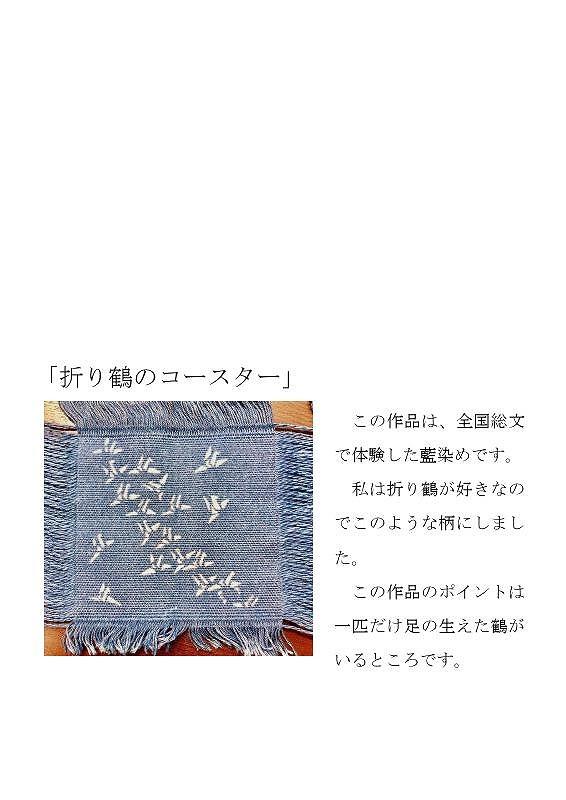 「折り鶴のコースター」
この作品は、全国総文
で体験した藍染めです。
私は折り鶴が好きなの
でこのような柄にしまし
た。
この作品のポイントは
一匹だけ足の生えた鶴が
いるところです。